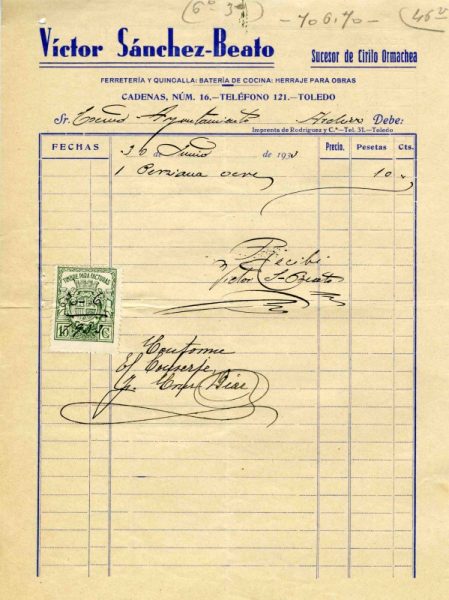 (6º 3º) - 706,70 - (46
Víctor Sánchez-Beato
Sucesor de Cirilo Ormachea
FERRETERÍA Y QUINCALLA: BATERÍA DE COCINA: HERRAJE PARA OBRAS
CADENAS, NÚM. 16.—TELÉFONO 121.—TOLEDO
Sr. Excmo Ayuntamiento Debe:
Imprenta de Rodríguez y C.ª—Tel. 31.—Toledo
FECHAS 30 de Junio de 193 Precio. Pesetas Cts.
1 Persiana 10
Recibí
Victor S. Beato
TIMBRE PARA FACTURAS
15 C
Conforme
El Conserje